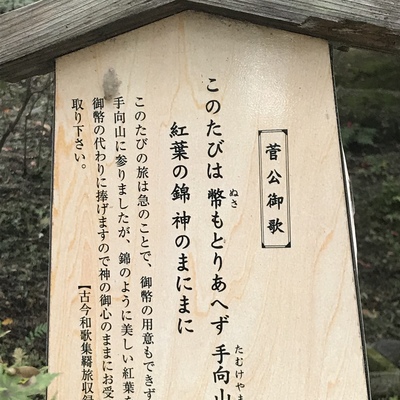 菅公御歌
このたびは 幣もとりあへず 手向山
ぬさ
たむけやま
紅葉の錦 神のまにまに
このたびの旅は急のことで、御幣の用意もできず
手向山に参りましたが、錦のように美しい紅葉を
御幣の代わりに捧げますので神の御心のままにお受
取り下さい。
【古今和歌集羇旅収録